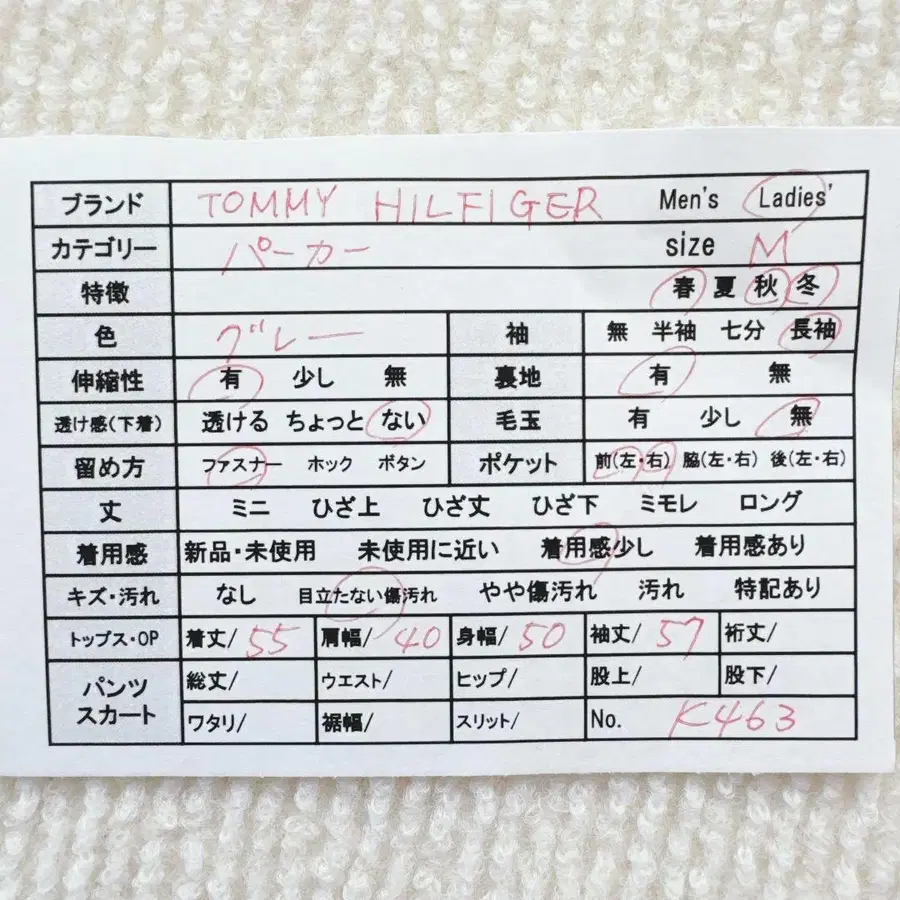 ブランド TOMMY HILFIGER Men's Ladies'
カテゴリー パーカー size M
特徴 春 夏 秋 冬
色 グレー 袖 無 半袖 七分 長袖
伸縮性 有 少し 無 裏地 有 無
透け感(下着) 透ける ちょっと ない 毛玉 有 少し 無
留め方 ファスナー ホック ボタン ポケット 前(左・右) 脇(左・右) 後(左・右)
丈 ミニ ひざ上 ひざ丈 ひざ下 ミモレ ロング
着用感 新品・未使用 未使用に近い 着用感少し 着用感あり
キズ・汚れ なし 目立たない傷汚れ やや傷汚れ 汚れ 特記あり
トップス・OP 着丈/ 55 肩幅/ 40 身幅/ 50 袖丈/ 57 裄丈/
パンツ スカート 総丈/ ウエスト/ ヒップ/ 股上/ 股下/
ワタリ/ 裾幅/ スリット/ No. K463